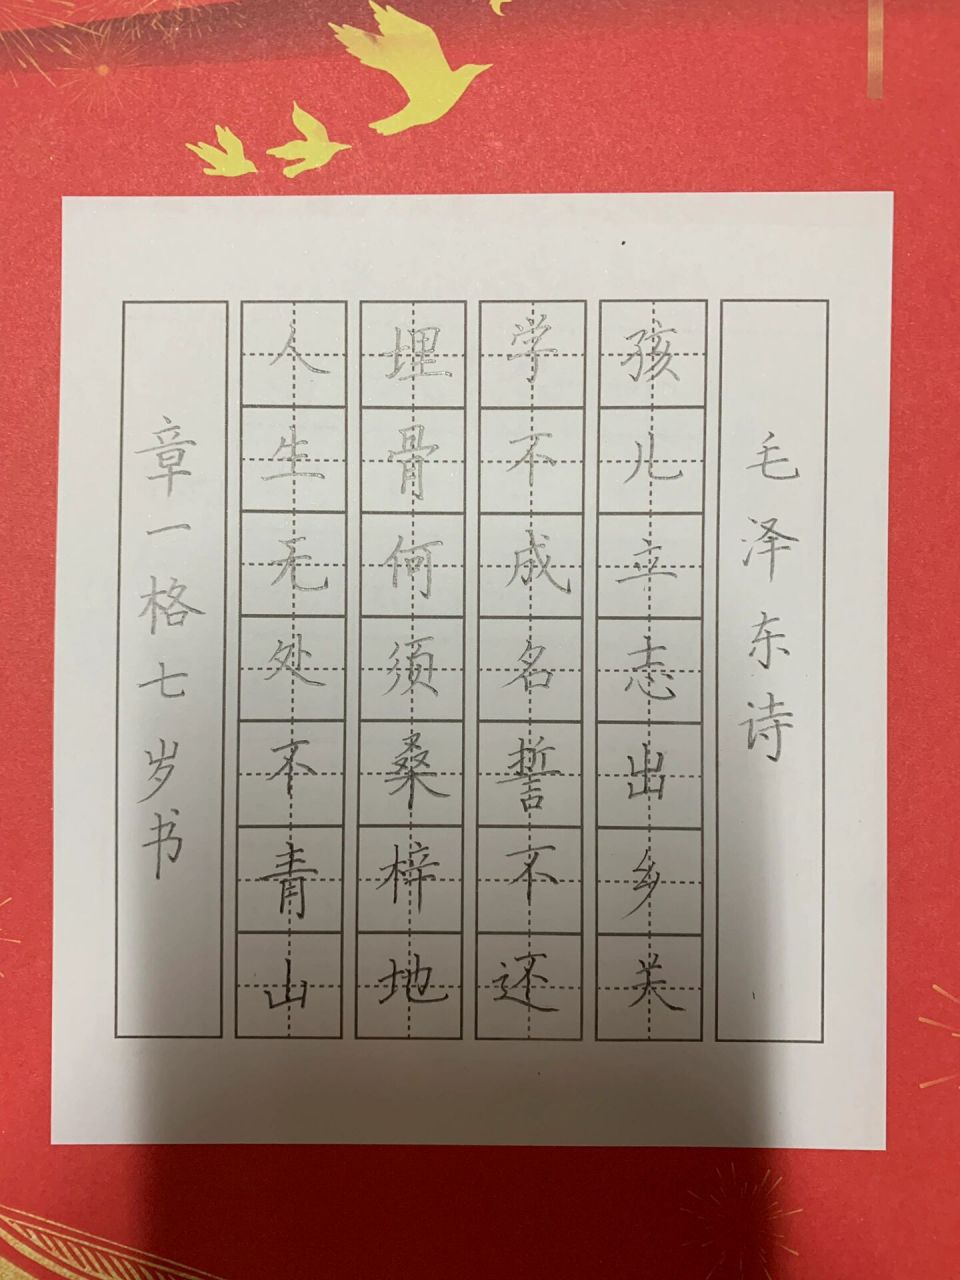 毛泽东诗
孩儿立志出乡关
学不成名誓不还
埋骨何须桑梓地
人生无处不青山
章一格七岁书